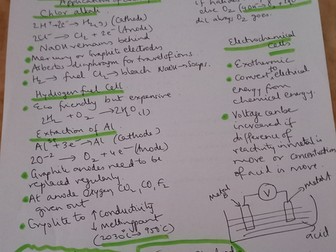 Applications of
Chlor alkali
2H⁺ + 2e⁻ → H₂ (g) (Cathode)
2Cl⁻ → Cl₂ + 2e⁻ (Anode)
• NaOH remains behind
• Mercury or graphite electrodes
• Asbestos diaphragm for travel of ions
• H₂ → fuel Cl₂ → bleach NaOH → soaps
Hydrogen fuel Cell
• Eco friendly but expensive
2H₂ + O₂ → 2H₂O (l)
Extraction of Al
Al³⁺ + 3e⁻ → Al (Cathode)
2O⁻² → O₂ + 4e⁻ (Anode)
• Graphite anodes need to be
replaced regularly
• At anode oxygen CO₂, CO, F₂
given out
• Cryolite to ↑ Conductivity
↓ melting point
(2030° → 958°C)
dil. always O₂ goes
Electrochemical
Cells
• Exothermic
• Convert electrical
energy from
chemical energy.
• Voltage can be
increased if
difference of
reactivity in metal is
more or concentration
of acid is more
metal
V
metal
acid